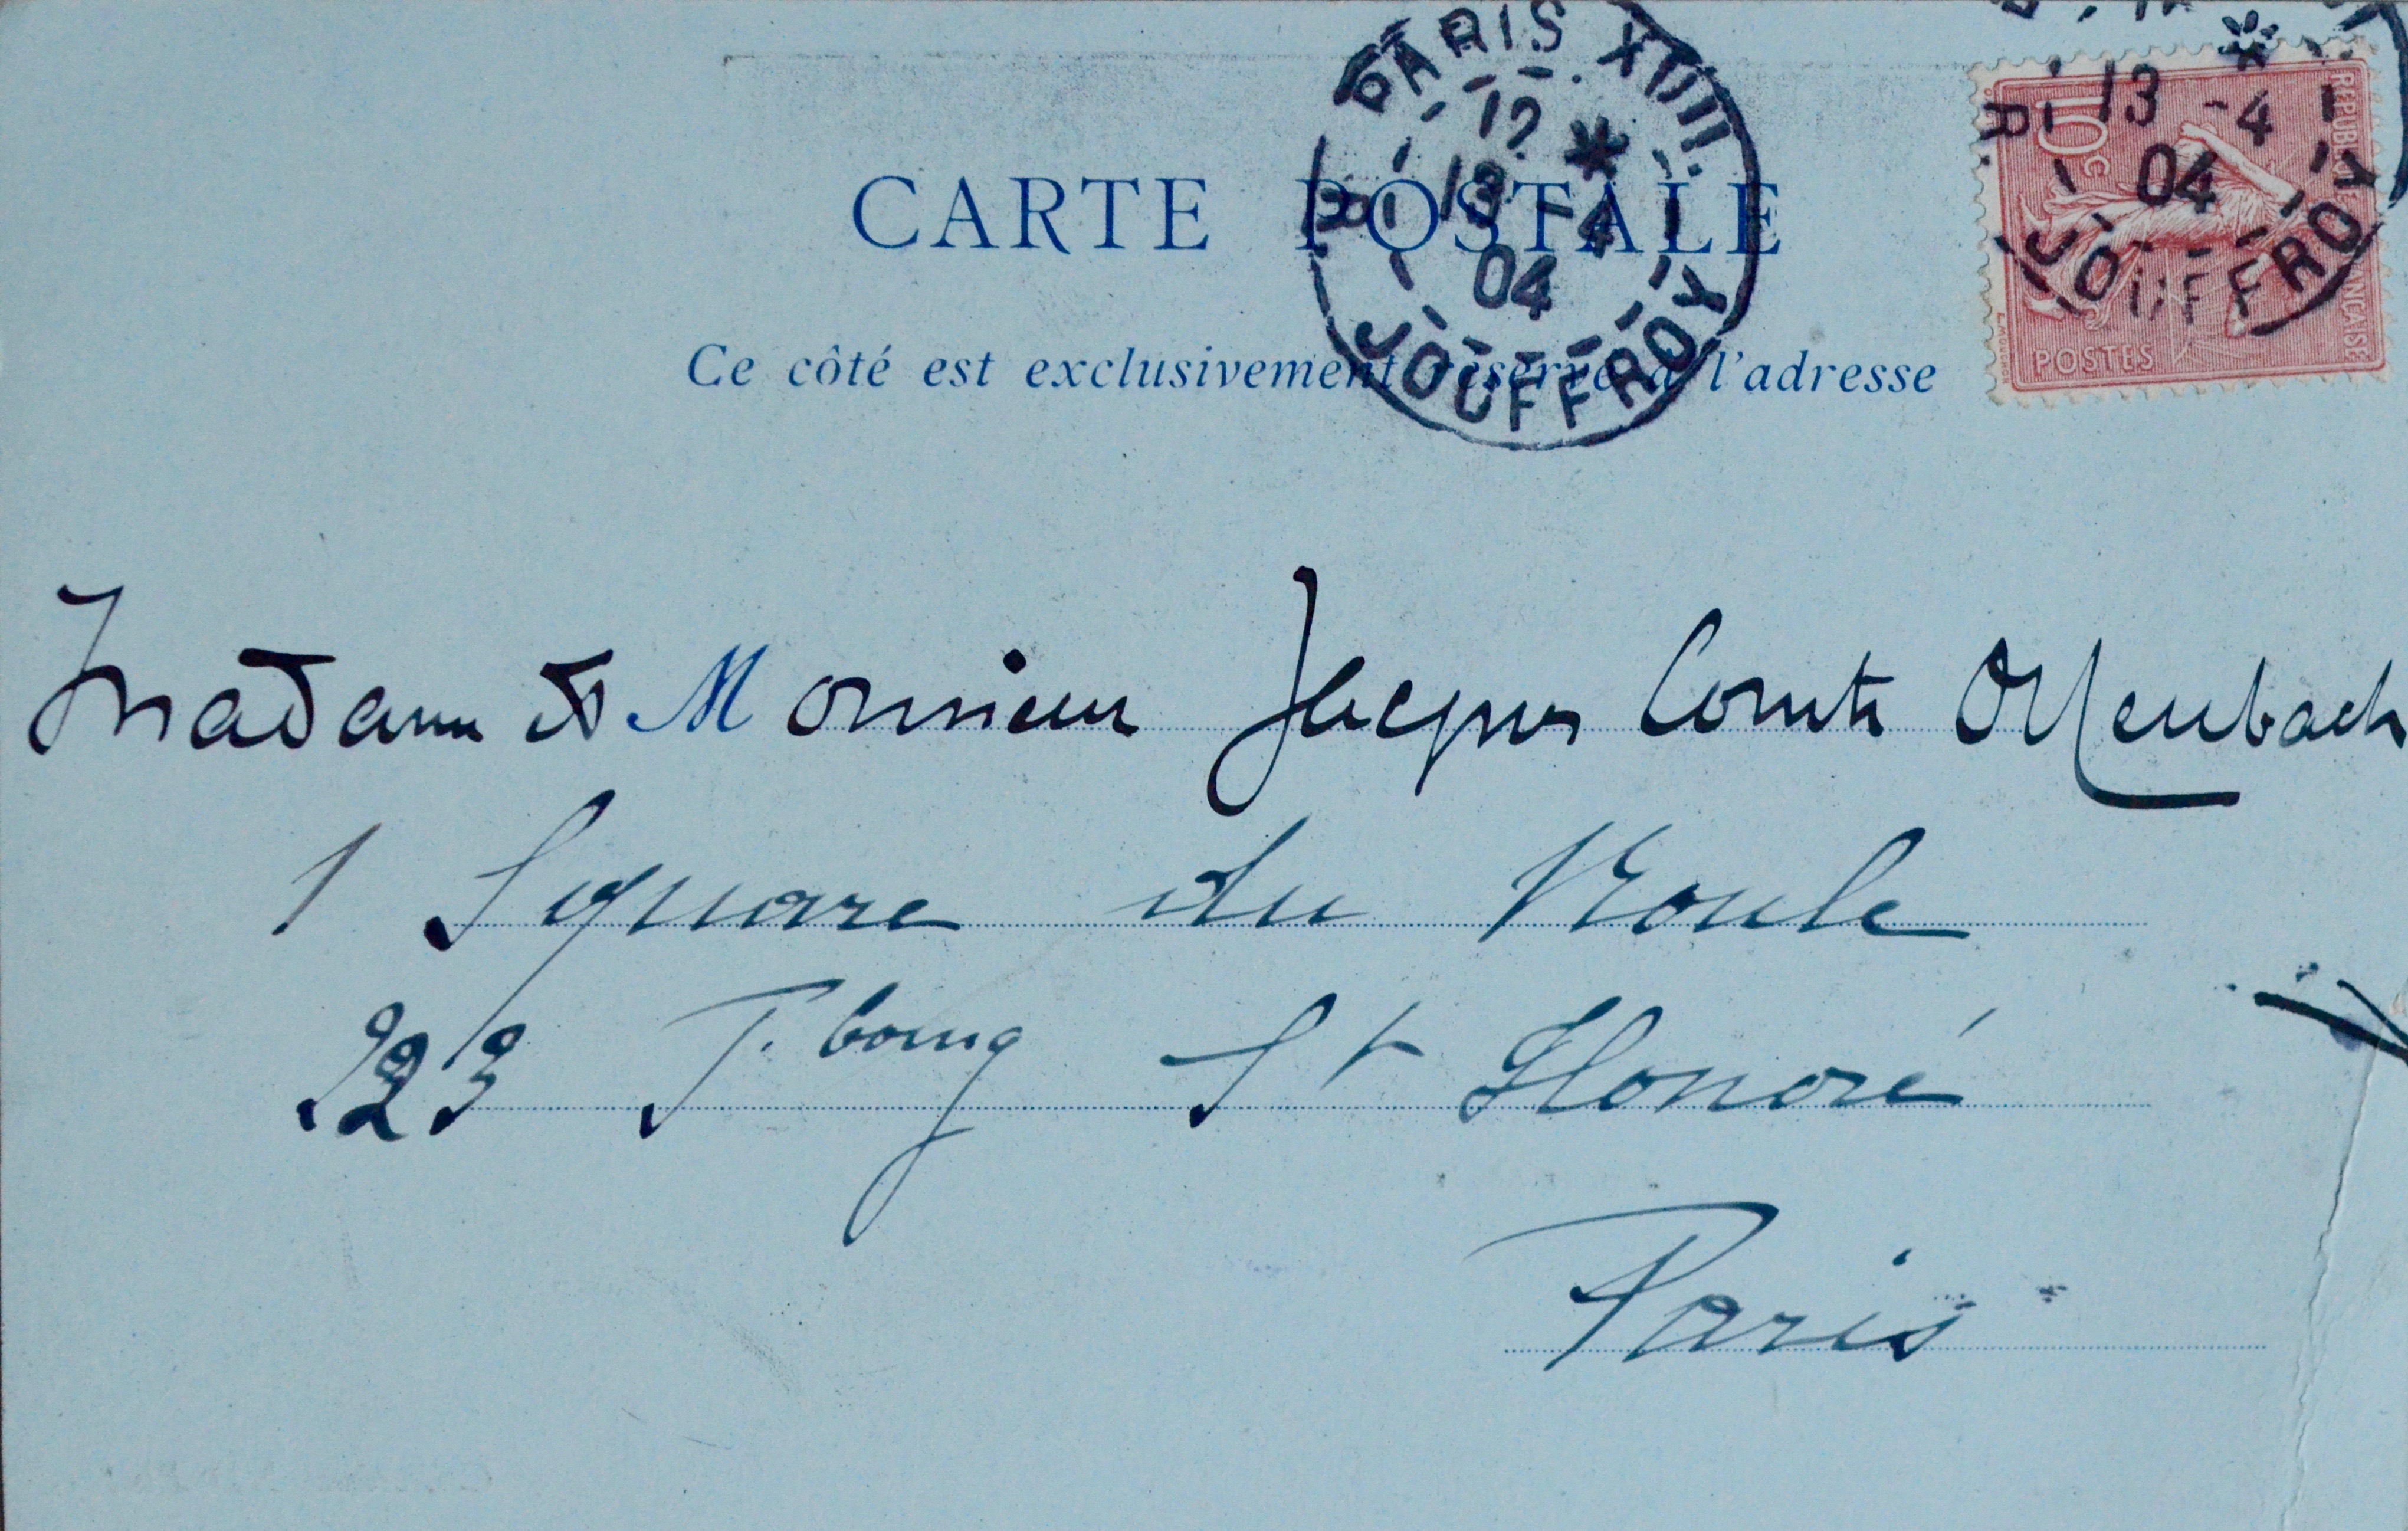 PARIS XVII. R. JOUFFROY
12 *
13 -4
04
13 -4
04
R. JOUFFROY
10c
REPUBLIQUE FRANÇAISE
POSTES
CARTE POSTALE
Ce côté est exclusivement réservé à l'adresse
Madame et Monsieur Jacques Comte Offenbach
1 Square du Roule
223 F. bourg St Honoré
Paris